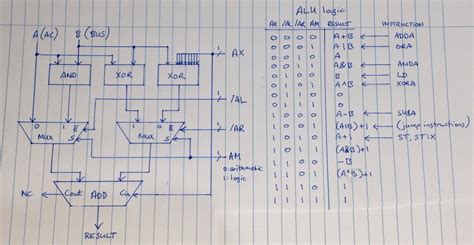 A (AC)
B (BUS)
AX
AND XOR XOR
/AL
0 1 E
S
MUX
0 1 E
S
MUX
/AR
AM
0: arithmetic
1: logic
NC Cout ADD Cin
RESULT
ALU logic
AX /AL /AR AM RESULT INSTRUCTION
0 0 0 0 A+B ADDA
0 0 0 1 A|B ORA
0 0 1 0 A
0 0 1 1 A&B ANDA
0 1 0 0 B LD
0 1 0 1 A^B XORA
0 1 1 0
0 1 1 1
1 0 0 0 A-B SUBA
1 0 0 1 (A|B)+1 (jump instructions)
1 0 1 0 A+1 ST, STIX
1 0 1 1 (A&B)+1
1 1 0 0 -B
1 1 0 1 (A^B)+1
1 1 1 0
1 1 1 1